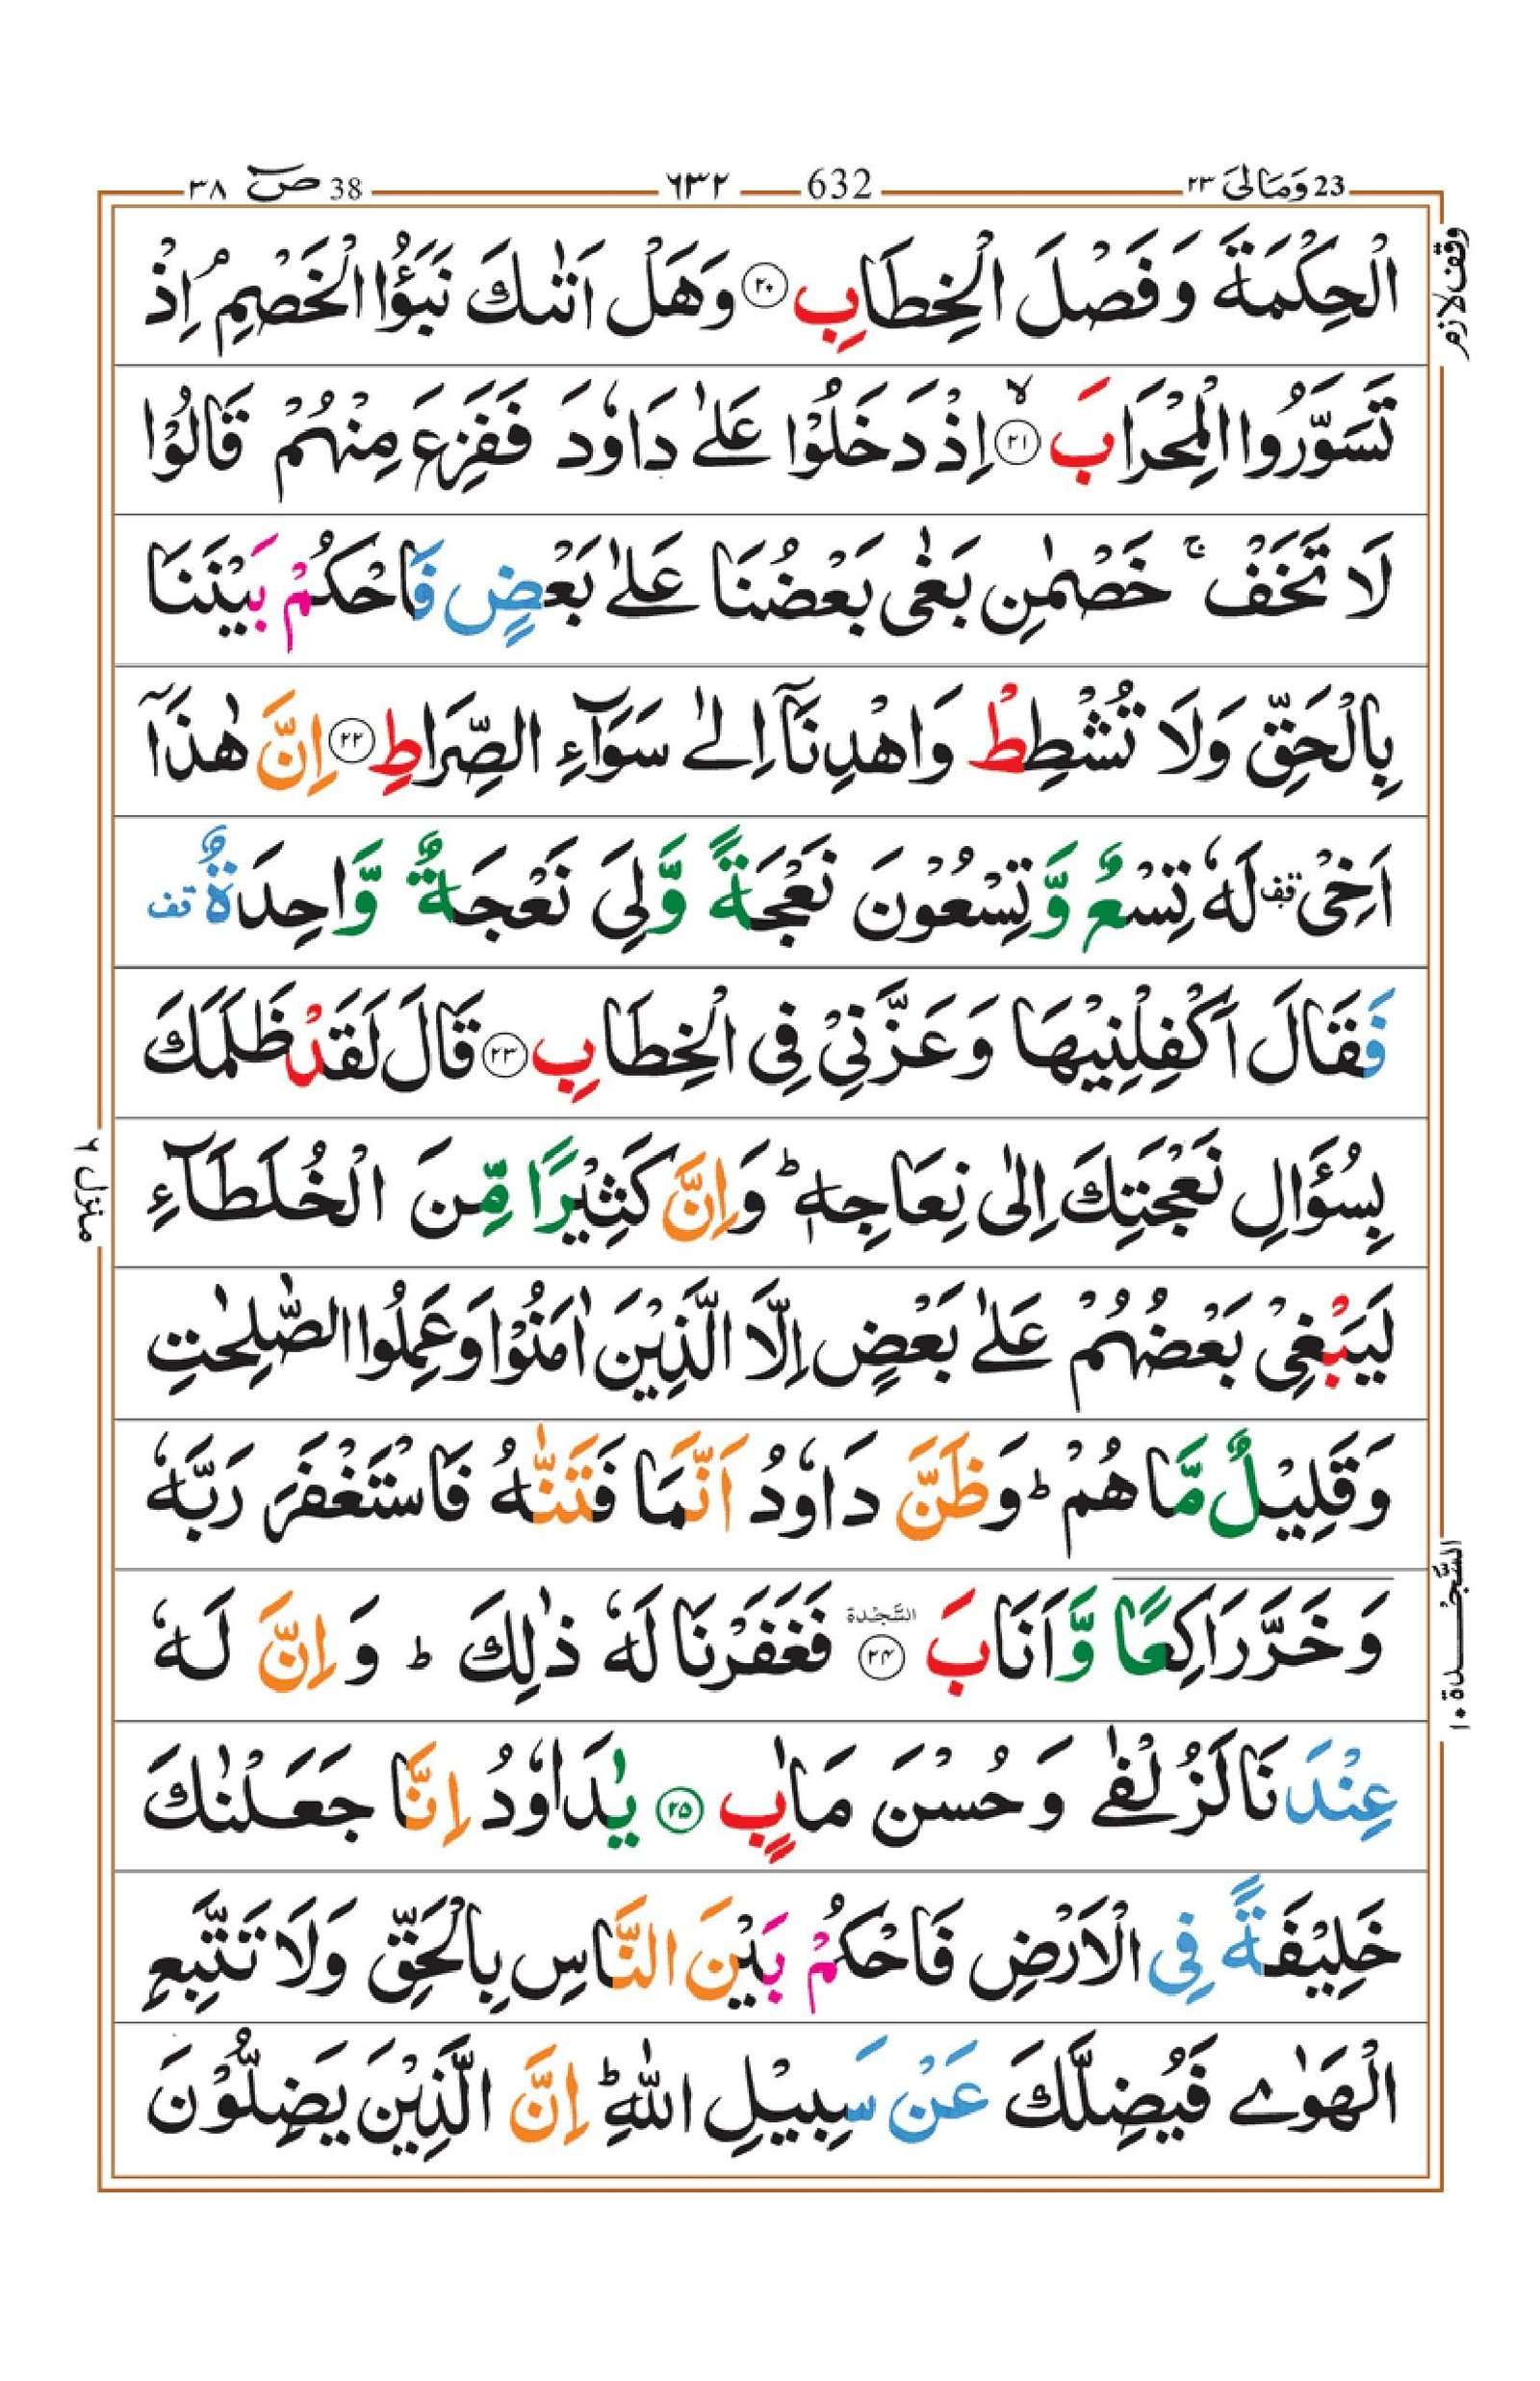 38 صٓ ٣٨
٦٣٢ 632
23 وَمَالِیَ ٢٣
وقف لازم
الْحِكْمَةَ وَفَصْلَ الْخِطَابِ ﴿٢٠﴾ وَهَلْ اَتٰىكَ نَبَؤُا الْخَصْمِ ۘ اِذْ
تَسَوَّرُوا الْمِحْرَابَ ﴿٢١﴾ۙ اِذْ دَخَلُوْا عَلٰى دَاوٗدَ فَفَزِعَ مِنْهُمْ قَالُوْا
لَا تَخَفْ ۚ خَصْمٰنِ بَغٰى بَعْضُنَا عَلٰى بَعْضٍ فَاحْكُمْ بَيْنَنَا
بِالْحَقِّ وَلَا تُشْطِطْ وَاهْدِنَآ اِلٰى سَوَآءِ الصِّرَاطِ ﴿٢٢﴾ اِنَّ هٰذَآ
اَخِىْ قف لَهٗ تِسْعٌ وَّتِسْعُوْنَ نَعْجَةً وَّلِىَ نَعْجَةٌ وَّاحِدَةٌ قف
فَقَالَ اَكْفِلْنِيْهَا وَعَزَّنِىْ فِى الْخِطَابِ ﴿٢٣﴾ قَالَ لَقَدْ ظَلَمَكَ
بِسُؤَالِ نَعْجَتِكَ اِلٰى نِعَاجِهٖ ؕ وَاِنَّ كَثِيْرًا مِّنَ الْخُلَطَآءِ
لَيَبْغِىْ بَعْضُهُمْ عَلٰى بَعْضٍ اِلَّا الَّذِيْنَ اٰمَنُوْا وَعَمِلُوا الصّٰلِحٰتِ
وَقَلِيْلٌ مَّا هُمْ ؕ وَظَنَّ دَاوٗدُ اَنَّمَا فَتَنّٰهُ فَاسْتَغْفَرَ رَبَّهٗ
وَخَرَّ رَاكِعًا وَّاَنَابَ السَّجْدَة ﴿٢٤﴾ فَغَفَرْنَا لَهٗ ذٰلِكَ ؕ وَاِنَّ لَهٗ
عِنْدَنَا لَزُلْفٰى وَحُسْنَ مَاٰبٍ ﴿٢٥﴾ يٰدَاوٗدُ اِنَّا جَعَلْنٰكَ
خَلِيْفَةً فِى الْاَرْضِ فَاحْكُمْ بَيْنَ النَّاسِ بِالْحَقِّ وَلَا تَتَّبِعِ
الْهَوٰى فَيُضِلَّكَ عَنْ سَبِيْلِ اللّٰهِ ؕ اِنَّ الَّذِيْنَ يَضِلُّوْنَ
منزل ٦
السَّجْدَة ١٠